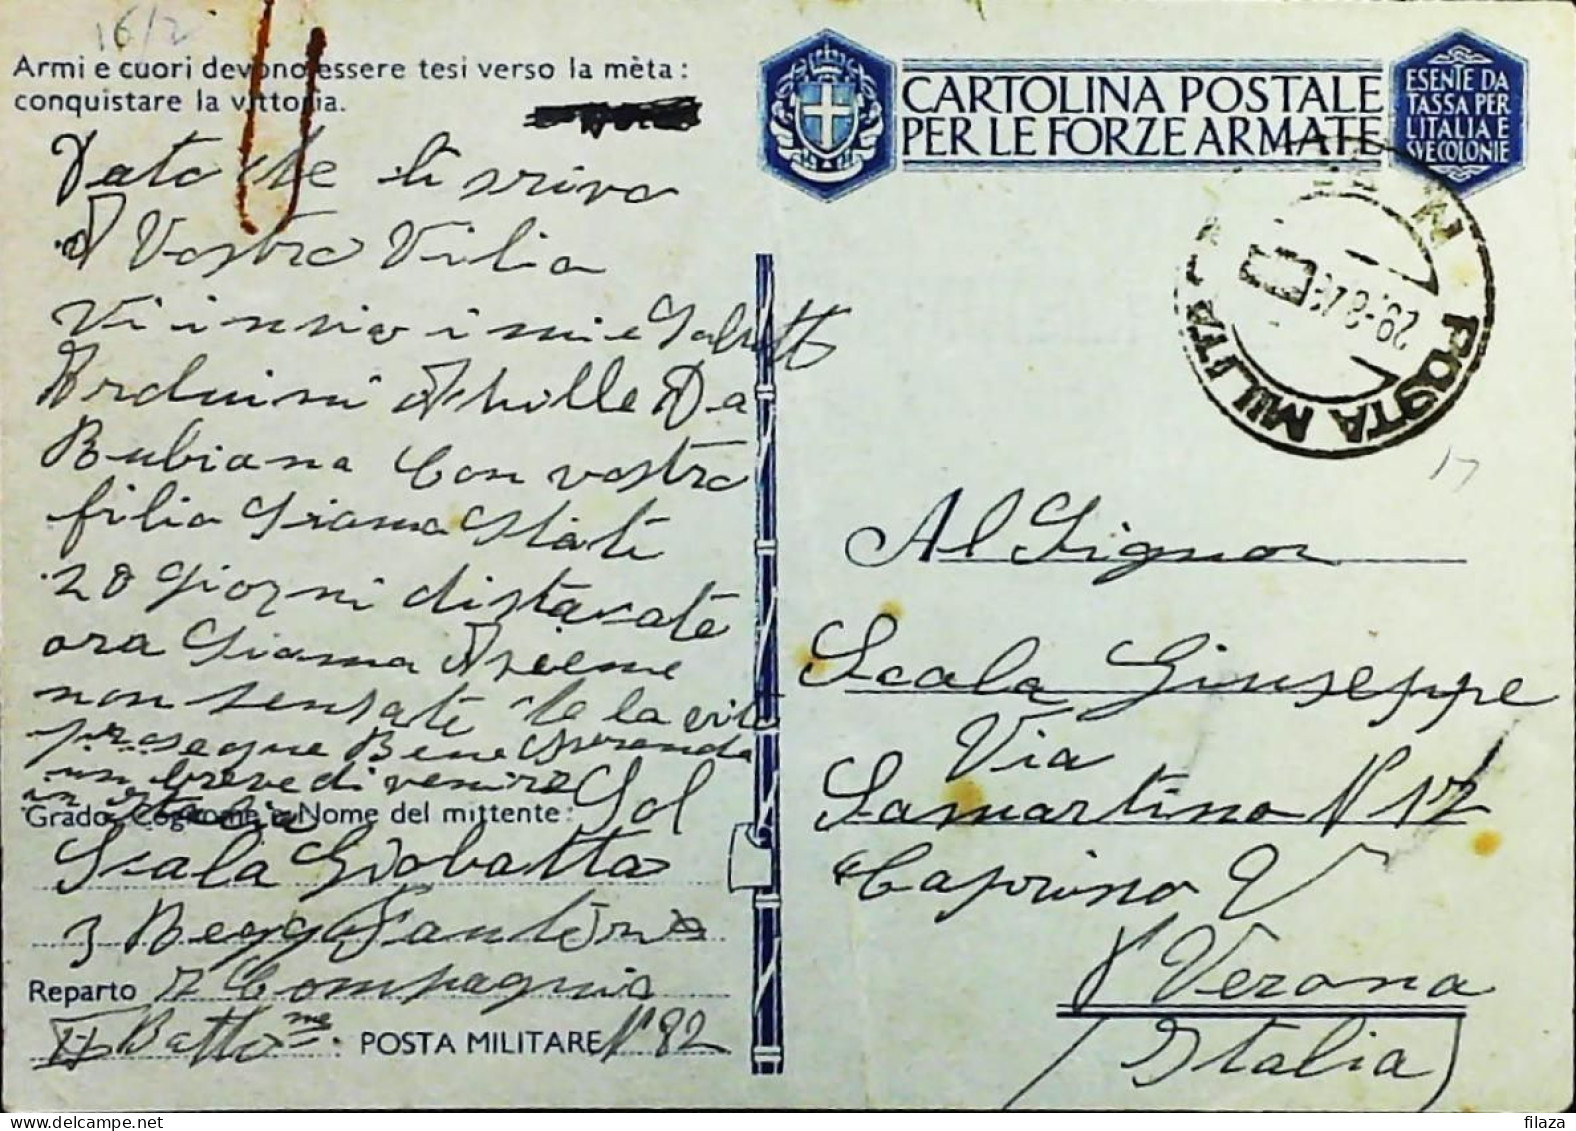 16/2
Armi e cuori devono essere tesi verso la mèta:
conquistare la vittoria.
Dato che ti srivo
Vostro Vilio
Vi invio i miei Saluti
Arduini Achille Da
Rubiana Con vostro
filio Siamo Stati
20 Giorni distacate
ora Siamo Asieme
non pensate che la vita
prosegue Bene Sperando
un breve di venire
in Italia
Grado, Cognome e Nome del mittente: Sol
Scala Giobatta
3 Regg Fanteria
Reparto 7 Compagnia
II Batto POSTA MILITARE N 82
CARTOLINA POSTALE
PER LE FORZE ARMATE
ESENTE DA
TASSA PER
L'ITALIA E
SUE COLONIE
POSTA MILITARE
29-8
17
Al Signor
Scala Giuseppe
Via
Samartino N 17
Caprino V
Verona
(Italia)
filaza